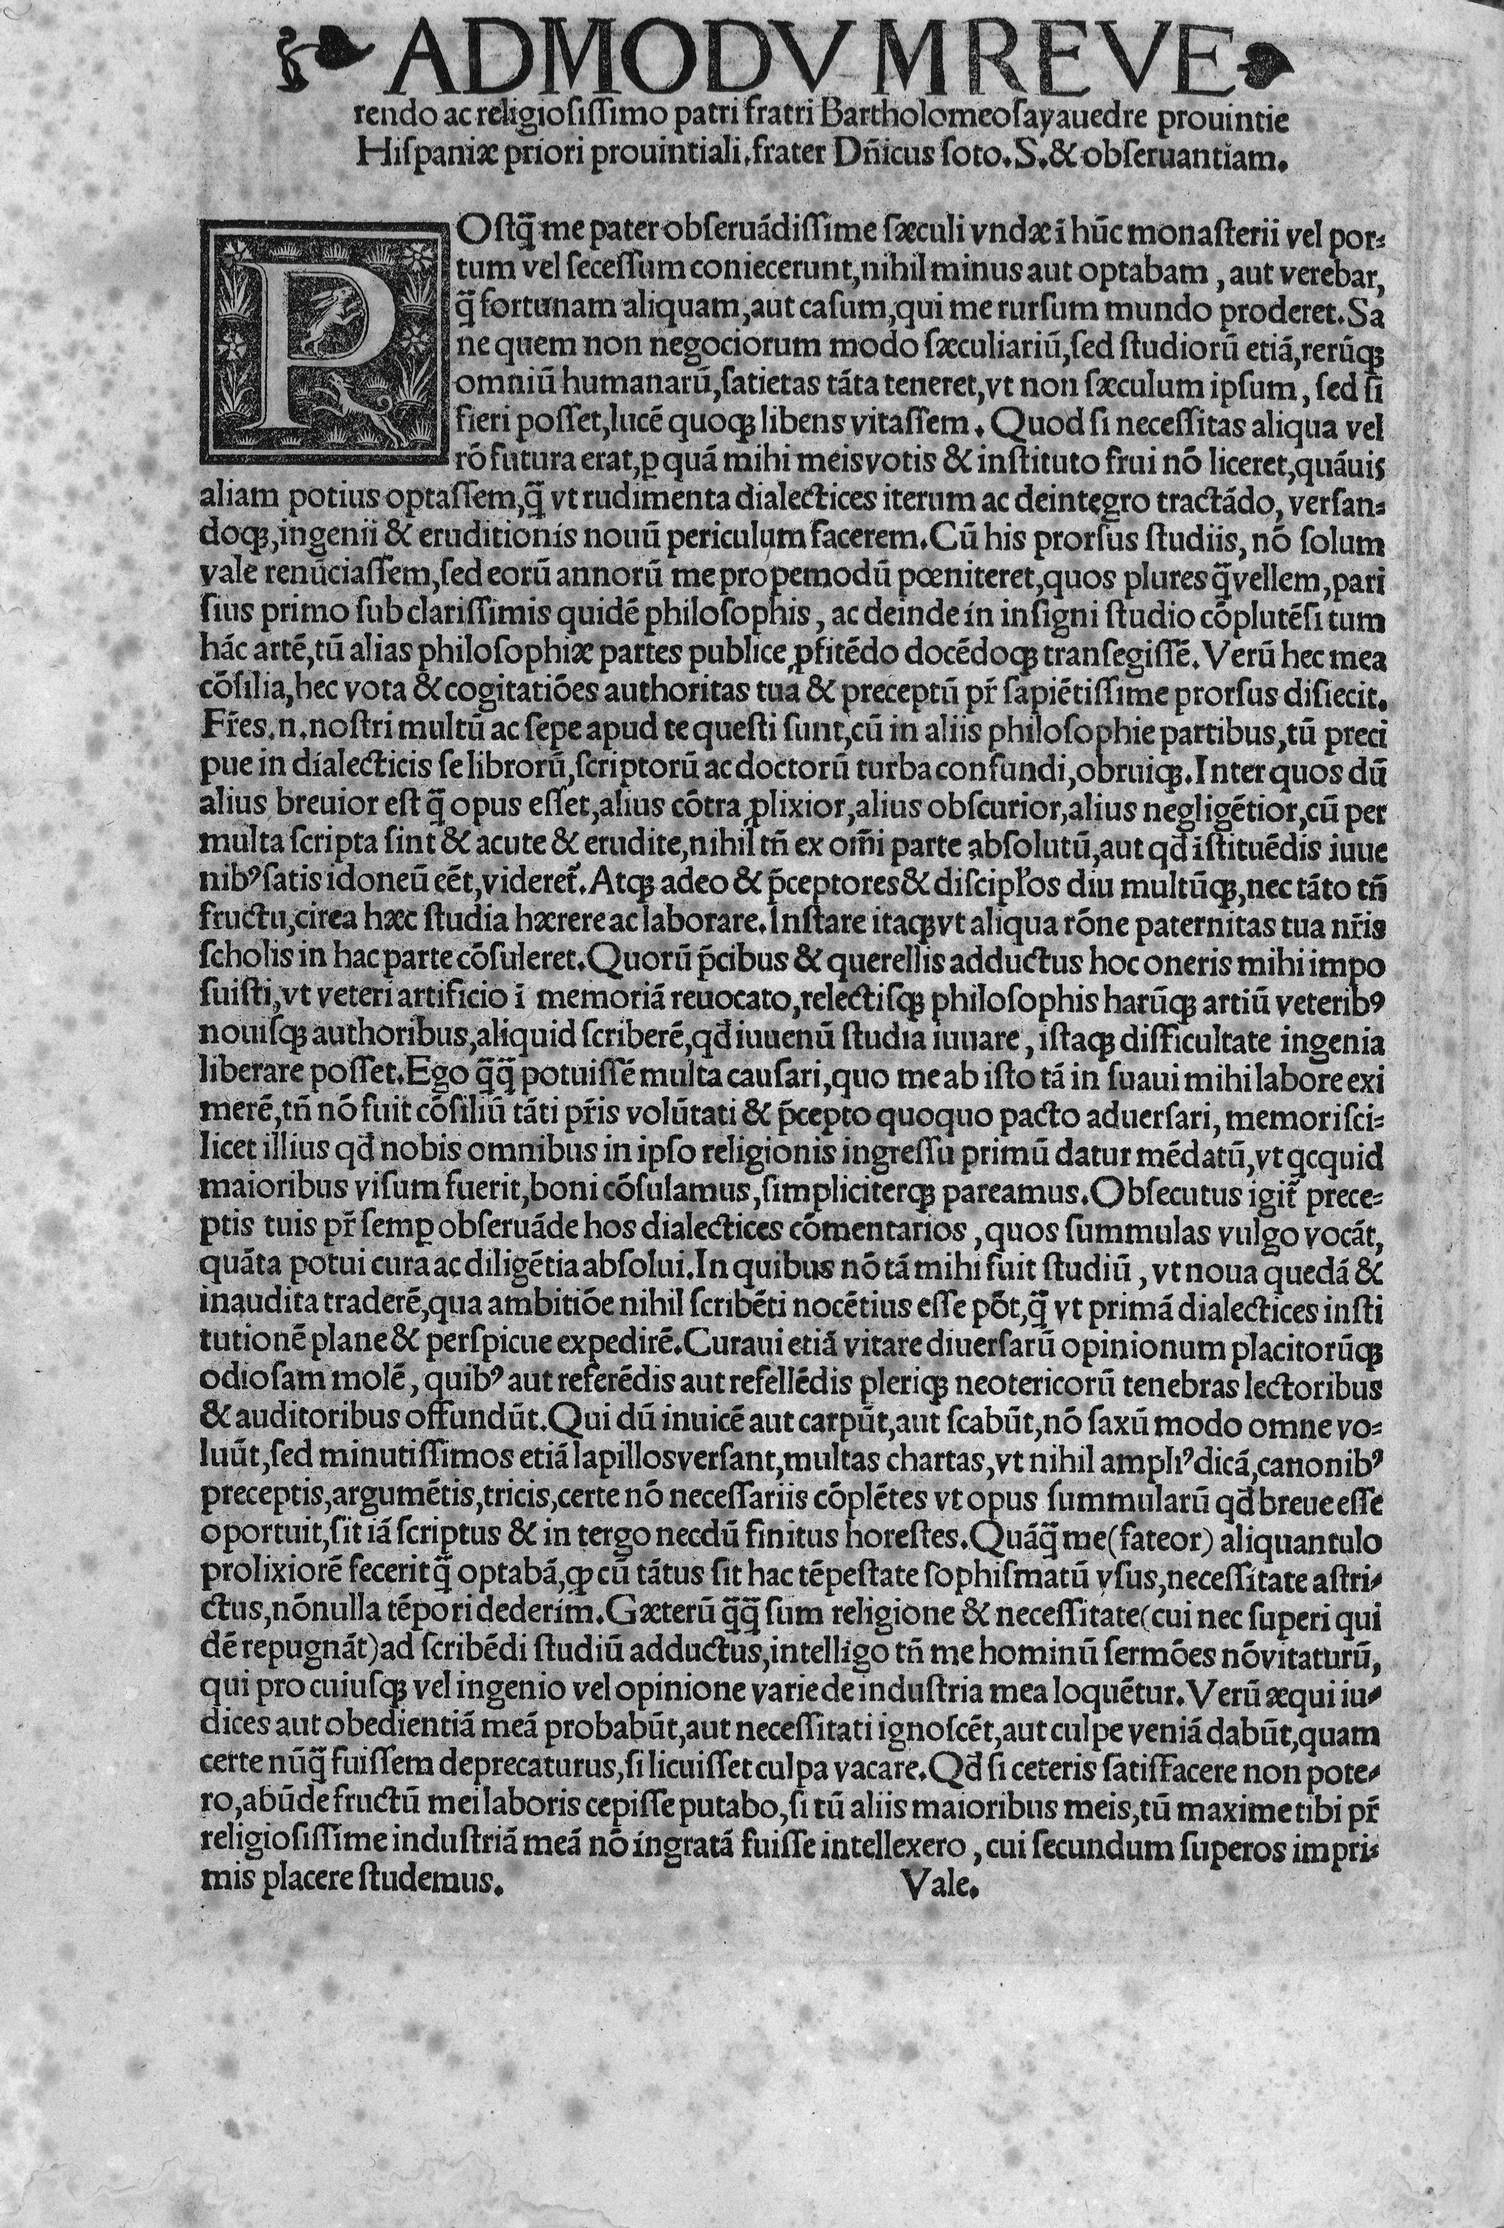 ADMODVM REVE
rendo ac religiosissimo patri fratri Bartholomeo sayauedre prouintie
Hispaniæ priori prouintiali. frater Dñicus soto. S. & obseruantiam.
POstq̃ me pater obseruãdissime sæculi vndæ ĩ hũc monasterii vel por-
tum vel secessum coniecerunt, nihil minus aut optabam, aut verebar,
q̃ fortunam aliquam, aut casum, qui me rursum mundo proderet. Sa
ne quem non negociorum modo sæculiariũ, sed studiorũ etiã, rerũqꝫ
omniũ humanarũ, satietas tãta teneret, vt non sæculum ipsum, sed si
fieri posset, lucẽ quoqꝫ libens vitassem. Quod si necessitas aliqua vel
rõ futura erat, ꝑ quã mihi meis votis & instituto frui nõ liceret, quãuis
aliam potius optassem, q̃ vt rudimenta dialectices iterum ac deintegro tractãdo, versan-
doqꝫ, ingenii & eruditionis nouũ periculum facerem. Cũ his prorsus studiis, nõ solum
vale renũciassem, sed eorũ annorũ me propemodũ pœniteret, quos plures q̃ vellem, pari
sius primo sub clarissimis quidẽ philosophis, ac deinde in insigni studio cõplutẽsi tum
hãc artẽ, tũ alias philosophiæ partes publice ꝓfitẽdo docẽdoqꝫ transegissẽ. Verũ hec mea
cõsilia, hec vota & cogitatiões authoritas tua & preceptũ pr̃ sapiẽtissime prorsus disiecit.
Fr̃es. n. nostri multũ ac sepe apud te questi sunt, cũ in aliis philosophie partibus, tũ preci
pue in dialecticis se librorũ, scriptorũ ac doctorũ turba confundi, obruiqꝫ. Inter quos dũ
alius breuior est q̃ opus esset, alius cõtra ꝓlixior, alius obscurior, alius negligẽtior, cũ per
multa scripta sint & acute & erudite, nihil tñ ex om̃i parte absolutũ, aut qđ ĩstituẽdis iuue
nibꝰ satis idoneũ eẽt, videret̃. Atqꝫ adeo & p̃ceptores & discipl̃os diu multũqꝫ, nec tãto tñ
fructu, circa hæc studia hærere ac laborare. Instare itaqꝫ vt aliqua rõne paternitas tua nr̃is
scholis in hac parte cõsuleret. Quorũ p̃cibus & querellis adductus hoc oneris mihi impo
suisti, vt veteri artificio ĩ memoriã reuocato, relectisqꝫ philosophis harũqꝫ artiũ veteribꝰ
nouisqꝫ authoribus, aliquid scriberẽ, qđ iuuenũ studia iuuare, istaqꝫ difficultate ingenia
liberare posset. Ego q̃q̃ potuissẽ multa causari, quo me ab isto tã in suaui mihi labore exi
merẽ, tñ nõ fuit cõsiliũ tãti pr̃is volũtati & p̃cepto quoquo pacto aduersari, memor sci-
licet illius qđ nobis omnibus in ipso religionis ingressu primũ datur mẽdatũ, vt qcquid
maioribus visum fuerit, boni cõsulamus, simpliciterqꝫ pareamus. Obsecutus igit̃ prece-
ptis tuis pr̃ semꝑ obseruãde hos dialectices cõmentarios, quos summulas vulgo vocãt,
quãta potui cura ac diligẽtia absolui. In quibus nõ tã mihi fuit studiũ, vt noua quedã &
inaudita traderẽ, qua ambitiõe nihil scribẽti nocẽtius esse põt, q̃ vt primã dialectices insti
tutionẽ plane & perspicue expedirẽ. Curaui etiã vitare diuersarũ opinionum placitorũqꝫ
odiosam molẽ, quibꝰ aut referẽdis aut refellẽdis pleriqꝫ neotericorũ tenebras lectoribus
& auditoribus offundũt. Qui dũ inuicẽ aut carpũt, aut scabũt, nõ saxũ modo omne vo-
luũt, sed minutissimos etiã lapillos versant, multas chartas, vt nihil ampliꝰ dicã, canonibꝰ
preceptis, argumẽtis, tricis, certe nõ necessariis cõplẽtes vt opus summularũ qđ breue esse
oportuit, sit iã scriptus & in tergo necdũ finitus horestes. Quãq̃ me (fateor) aliquantulo
prolixiorẽ fecerit q̃ optabã, ꝙ cũ tãtus sit hac tẽpestate sophismatũ vsus, necessitate astri-
ctus, nõnulla tẽpori dederim. Gæterũ q̃q̃ sum religione & necessitate (cui nec superi qui
dẽ repugnãt) ad scribẽdi studiũ adductus, intelligo tñ me hominũ sermões nõ vitaturũ,
qui pro cuiusqꝫ vel ingenio vel opinione varie de industria mea loquẽtur. Verũ æqui iu-
dices aut obedientiã meã probabũt, aut necessitati ignoscẽt, aut culpe veniã dabũt, quam
certe nũq̃ fuissem deprecaturus, si licuisset culpa vacare. Qđ si ceteris satisfacere non pote-
ro, abũde fructũ mei laboris cepisse putabo, si tũ aliis maioribus meis, tũ maxime tibi pr̃
religiosissime industriã meã nõ ingratã fuisse intellexero, cui secundum superos impri-
mis placere studemus. Vale.